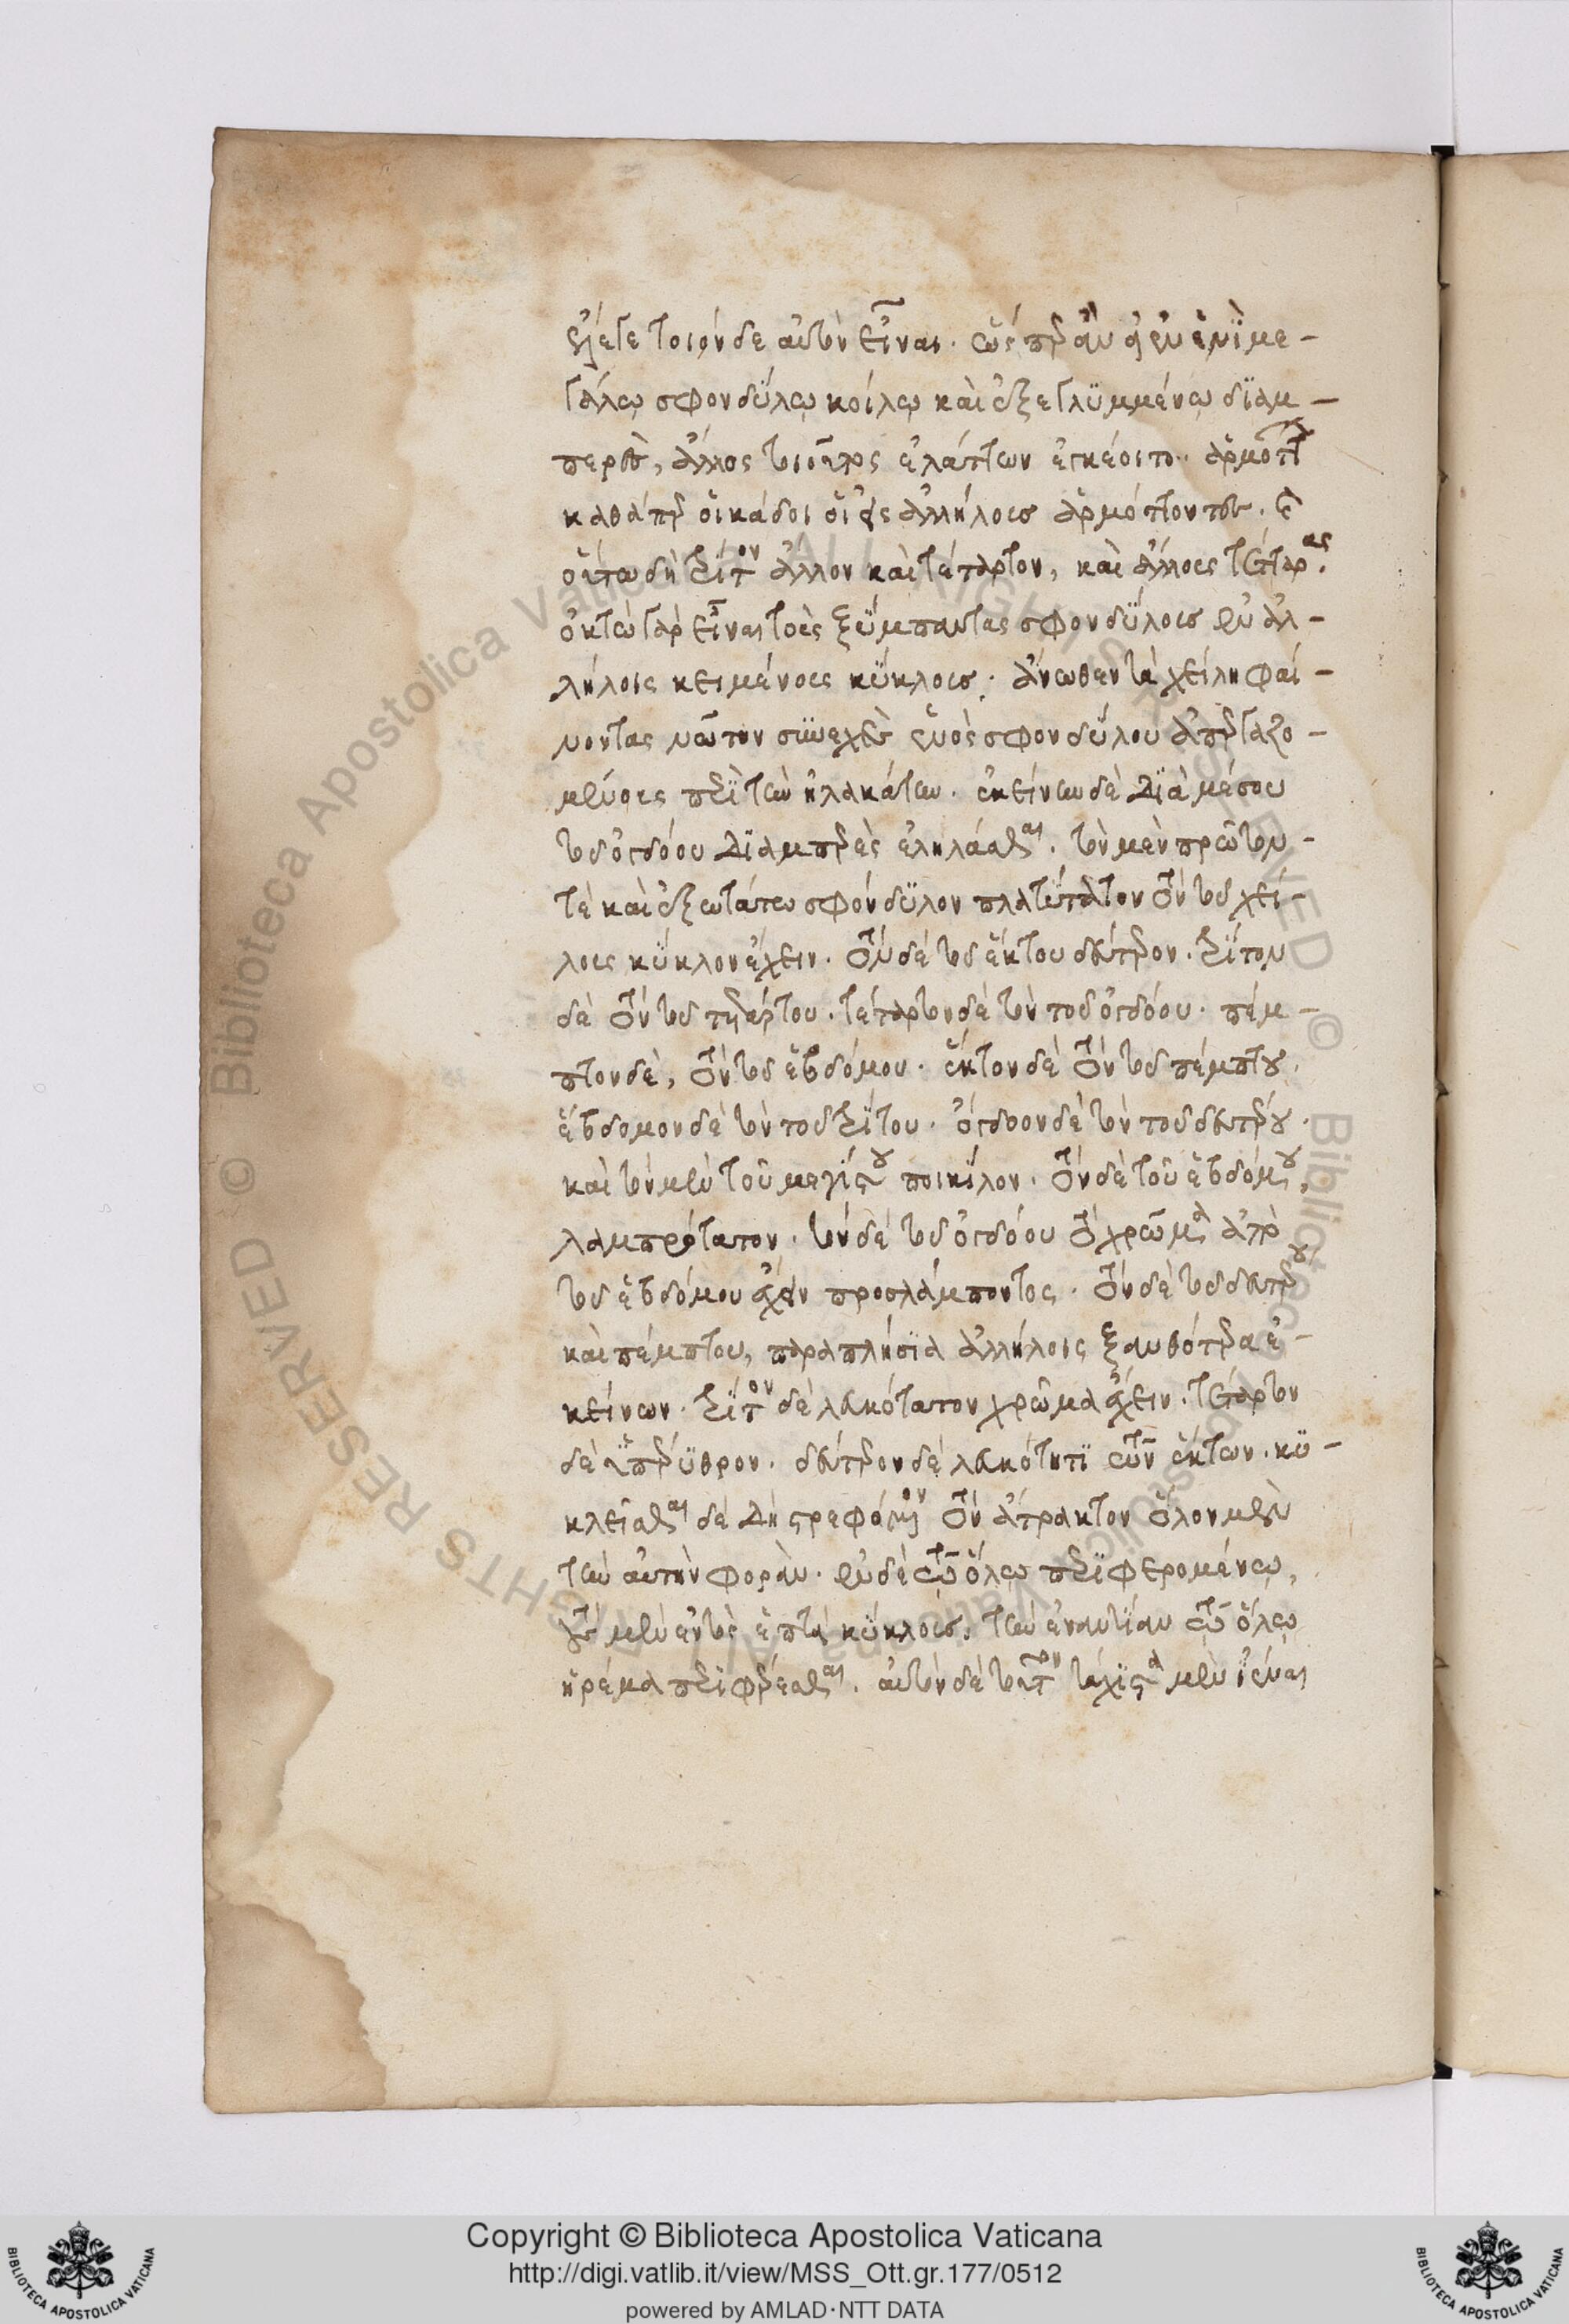 ἔλεγε τοιόνδε αὐτὸν εἶναι. ὥσπερ ἂν εἰ ἐν ἑνὶ με-
γάλῳ σφονδύλῳ κοίλῳ καὶ ἐξεγλυμμένῳ διαμ-
περὲς, ἄλλος τοιοῦτος ἐλάττων ἐγκέοιτο. ἁρμόττων
καθάπερ οἱ κάδοι οἱ εἰς ἀλλήλους ἁρμόττοντες. καὶ
οὕτω δὴ τρίτον ἄλλον καὶ τέταρτον, καὶ ἄλλους τέτταρας.
ὀκτὼ γὰρ εἶναι τοὺς ξύμπαντας σφονδύλους ἐν ἀλ-
λήλοις κειμένους κύκλους. ἄνωθεν τὰ χείλη φαί-
νοντας νῶτον συνεχὲς ἑνὸς σφονδύλου ἀπεργαζο-
μένους περὶ τὴν ἠλακάτην. ἐκείνην δὲ διὰ μέσου
τοῦ ὀγδόου διαμπερὲς ἐληλάσθαι. τὸν μὲν πρῶτον
τὲ καὶ ἐξωτάτω σφόνδυλον πλατύτατον τὸν τοῦ χεί-
λους κύκλον ἔχειν. τὸν δὲ τοῦ ἕκτου δεύτερον. τρίτον
δὲ τὸν τοῦ τετάρτου. τέταρτον δὲ τὸν τοῦ ὀγδόου. πέμ-
πτον δὲ, τὸν τοῦ ἑβδόμου. ἕκτον δὲ τὸν τοῦ πέμπτου.
ἕβδομον δὲ τὸν τοῦ τρίτου. ὄγδοον δὲ τὸν τοῦ δευτέρου.
καὶ τὸν μὲν τοῦ μεγίστου ποικίλον. τὸν δὲ τοῦ ἑβδόμου,
λαμπρότατον. τὸν δὲ τοῦ ὀγδόου τὸ χρῶμα ἀπὸ
τοῦ ἑβδόμου ἔχειν προσλάμποντος. τὸν δὲ τοῦ δευτέρου
καὶ πέμπτου, παραπλήσια ἀλλήλοις ξανθότερα ἐ-
κείνων. τρίτον δὲ λευκότατον χρῶμα ἔχειν. τέταρτον
δὲ ὑπέρυθρον. δεύτερον δὲ λευκότητι τῶν ἕκτων. κυ-
κλεῖσθαι δὲ δὴ στρεφόμενον τὸν ἄτρακτον ὅλον μὲν
τὴν αὐτὴν φοράν. ἐν δὲ τῷ ὅλῳ περιφερομένῳ,
τοὺς μὲν ἐντὸς ἑπτὰ κύκλους, τὴν ἐναντίαν τῷ ὅλῳ
ἠρέμα περιφέρεσθαι. αὐτὸν δὲ τούτων τάχιστα μὲν ἰέναι
Copyright © Biblioteca Apostolica Vaticana
http://digi.vatlib.it/view/MSS_Ott.gr.177/0512
powered by AMLAD·NTT DATA
BIBLIOTECA APOSTOLICA VATICANA
BIBLIOTECA APOSTOLICA VATICANA
© Biblioteca Apostolica Vaticana ALL RIGHTS RESERVED